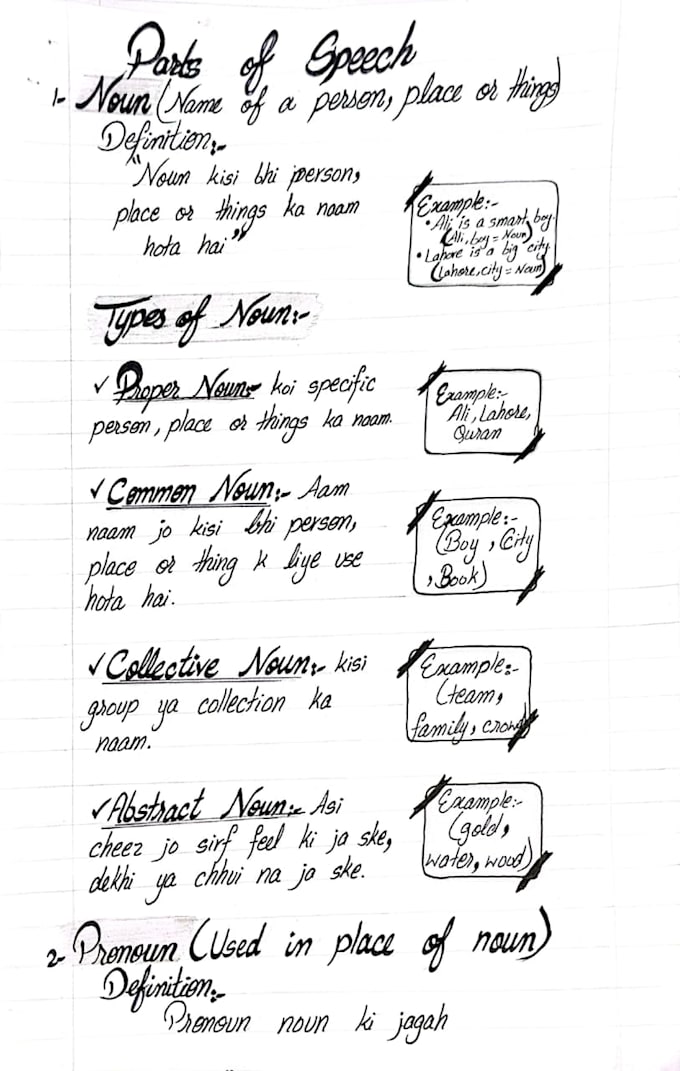 Parts of Speech
1- Noun (Name of a person, place or things)
Definition:-
"Noun kisi bhi person,
place or things ka naam
hota hai"
Example:-
• Ali is a smart boy.
(Ali, boy = Noun)
• Lahore is a big city
(Lahore, city = Noun)
Types of Noun:-
✓ Proper Noun:- koi specific
person, place or things ka naam.
Example:-
Ali, Lahore,
Quran
✓ Common Noun:- Aam
naam jo kisi bhi person,
place or thing k liye use
hota hai.
Example:-
(Boy, City
, Book)
✓ Collective Noun:- kisi
group ya collection ka
naam.
Example:-
(team,
family, crowd)
✓ Abstract Noun:- Asi
cheez jo sirf feel ki ja ske,
dekhi ya chhui na ja ske.
Example:-
(gold,
water, wood)
2- Pronoun (Used in place of noun)
Definition:-
Pronoun noun ki jagah